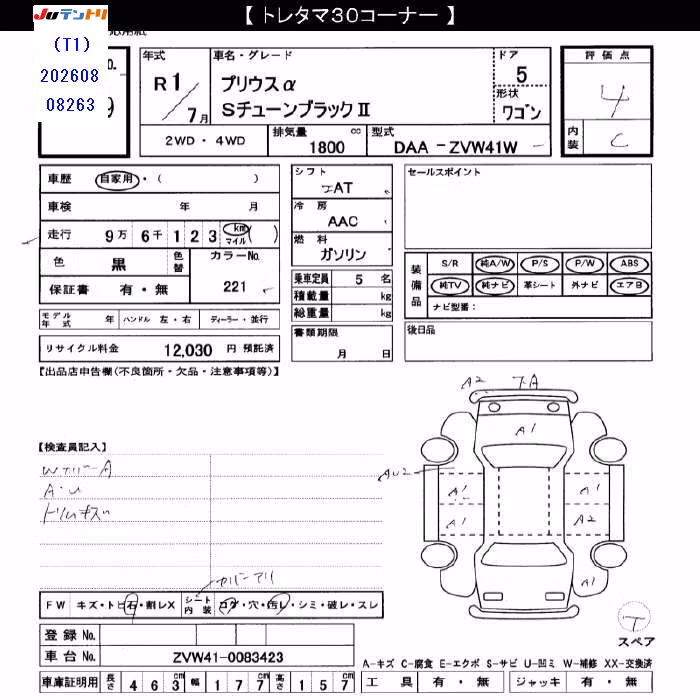 【 トレタマ30コーナー 】
JUテントリ
(T1)
202608
08263
年式
R1/7月
車名・グレード
プリウスα
Sチューンブラック II
ドア
5
形状
ワゴン
評価点
4
内装
C
2WD ・ 4WD
排気量
1800
cc
型式
DAA - ZVW41W
車歴
自家用 ・ ( )
車検 年 月
走行 9万 6千 1 2 3 km マイル ( )
色 黒 色替
カラーNo.
221
保証書 有 ・ 無
シフト
AT
冷房
AAC
燃料
ガソリン
乗車定員 5 名
積載量 kg
総重量 kg
書類期限
月 日
セールスポイント
装備品
S/R 純A/W P/S P/W ABS
純TV 純ナビ 革シート 外ナビ エアB
ナビ型番:
後日品
モデル年式 年 ハンドル 左・右 ディーラー・並行
リサイクル料金 12,030 円 預託済
【出品店申告欄(不良箇所・欠品・注意事項等)】
【検査員記入】
A・U
A2
A1
AU2
A1
A1
A1
A2
A1
FW キズ・トビ石・割レX シート内装 コゲ・穴・汚レ・シミ・破レ・スレ
T
スペア
登録 No.
車台 No. ZVW41-0083423
A-キズ C-腐食 E-エクボ S-サビ U-凹ミ W-補修 XX-交換済
車庫証明用 長さ 4 6 3 cm 幅 1 7 7 cm 高さ 1 5 7 cm
工具 有 ・ 無 ジャッキ 有 ・ 無